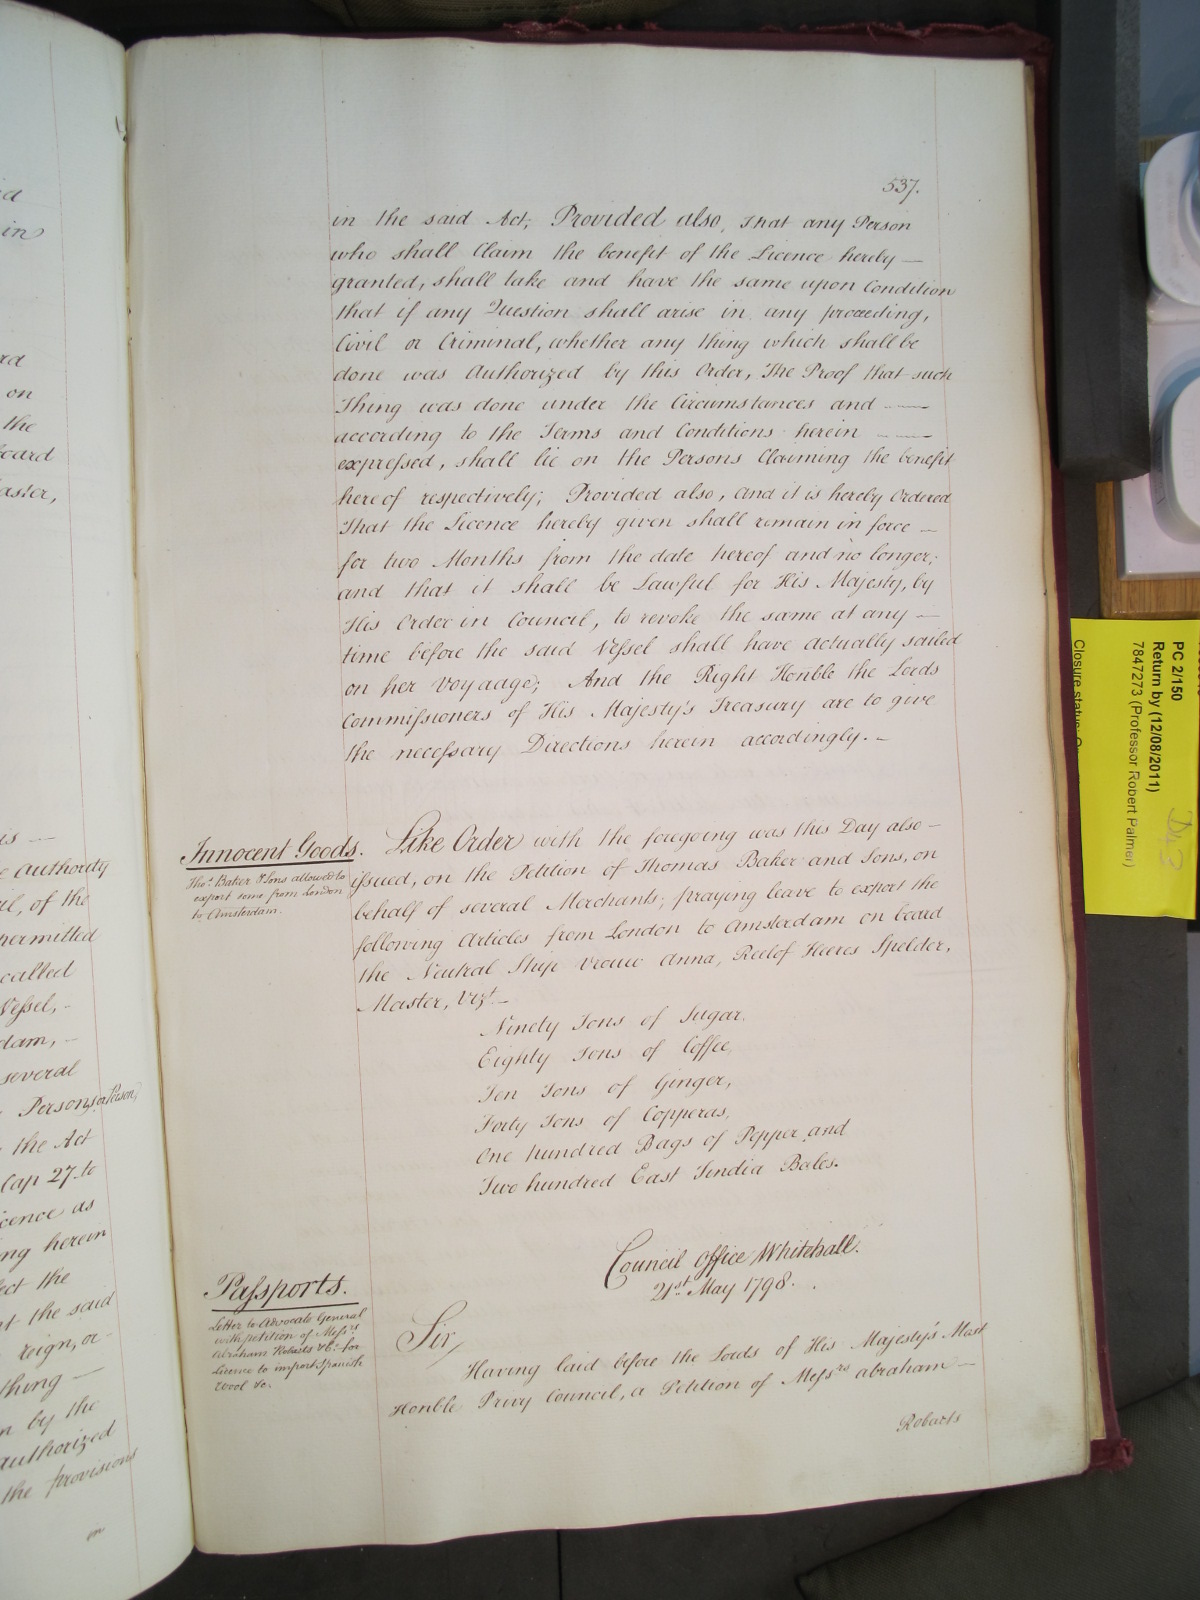 537.
in the said Act; Provided also, that any Person
who shall Claim the benefit of the Licence hereby —
granted, shall take and have the same upon Condition
that if any Question shall arise in any proceeding,
Civil or Criminal, whether any thing which shall be
done was Authorized by this Order, The Proof that such
Thing was done under the Circumstances and —
according to the Terms and Conditions herein —
expressed, shall lie on the Persons Claiming the benefit
hereof respectively; Provided also, and it is hereby Ordered
That the Licence hereby given shall remain in force —
for two Months from the date hereof and no longer;
and that it shall be Lawful for His Majesty, by
His Order in Council, to revoke the same at any —
time before the said Vessel shall have actually sailed
on her Voyage; And the Right Honble the Lords
Commissioners of His Majesty's Treasury are to give
the necessary Directions herein accordingly. —
Innocent Goods.
Thos. Baker & Sons allowed to
export some from London
to Amsterdam.
Like Order with the foregoing was this Day also —
issued, on the Petition of Thomas Baker and Sons, on
behalf of several Merchants; praying leave to export the
following Articles from London to Amsterdam on board
the Neutral Ship Vrouw Anna, Reelof Heeres Spelder,
Master, Vizt. —
Ninety Tons of Sugar.
Eighty Tons of Coffee,
Ten Tons of Ginger,
Forty Tons of Copperas,
One hundred Bags of Pepper, and
Two hundred East India Bales.
Council Office Whitehall.
21st. May 1798.
Passports.
Letter to Advocate General
with petition of Messrs
Abraham Robarts &c. for
Licence to import Spanish
Wool &c.
Sir,
Having laid before the Lords of His Majesty's Most
Honble Privy Council, a Petition of Messrs Abraham —
Robarts
in
rd
on
the
oard
aster,
is —
e Authority
il, of the
permitted
called
Vessel, -
dam, -
several
Persons or Person,
the Act
Cap 27. to
icence as
ng herein
ect the
nt the said
reign, or
thing —
n by the
authorized
the provisions
in
PC 2/150
Return by (12/08/2011)
7847273 (Professor Robert Palmer)
Closure status: